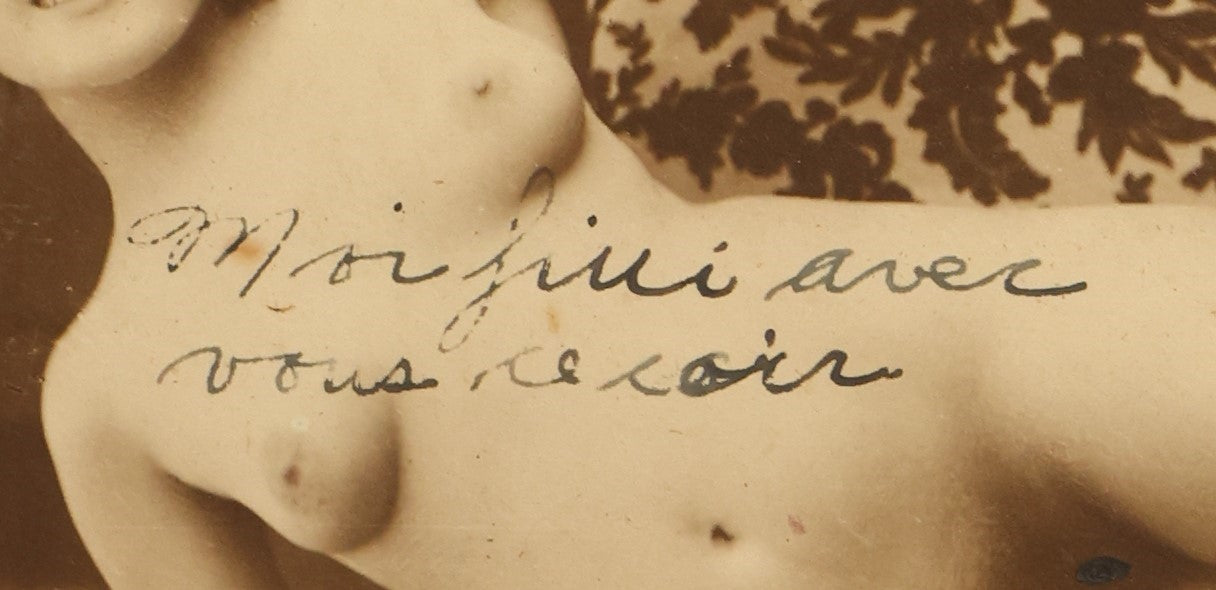 Moi fini avec
vous ce soir